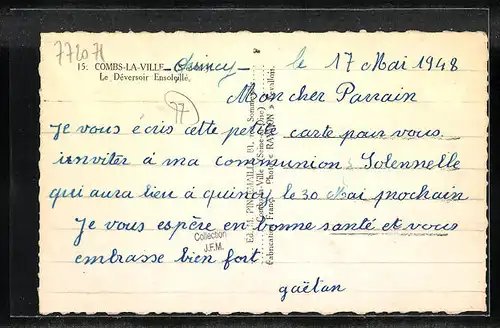 772071
15. COMBS-LA-VILLE
Le Déversoir Ensoleillé.
Quincy - le 17 Mai 1948
77
Mon cher Parrain
Je vous écris cette petite carte pour vous
inviter à ma communion Solennelle
qui aura lieu à quincy le 30 Mai prochain
Je vous espère en bonne santé et vous
embrasse bien fort
gaëtan
Collection
J.F.M.
Combs-la-Ville (Seine-et-Marne)